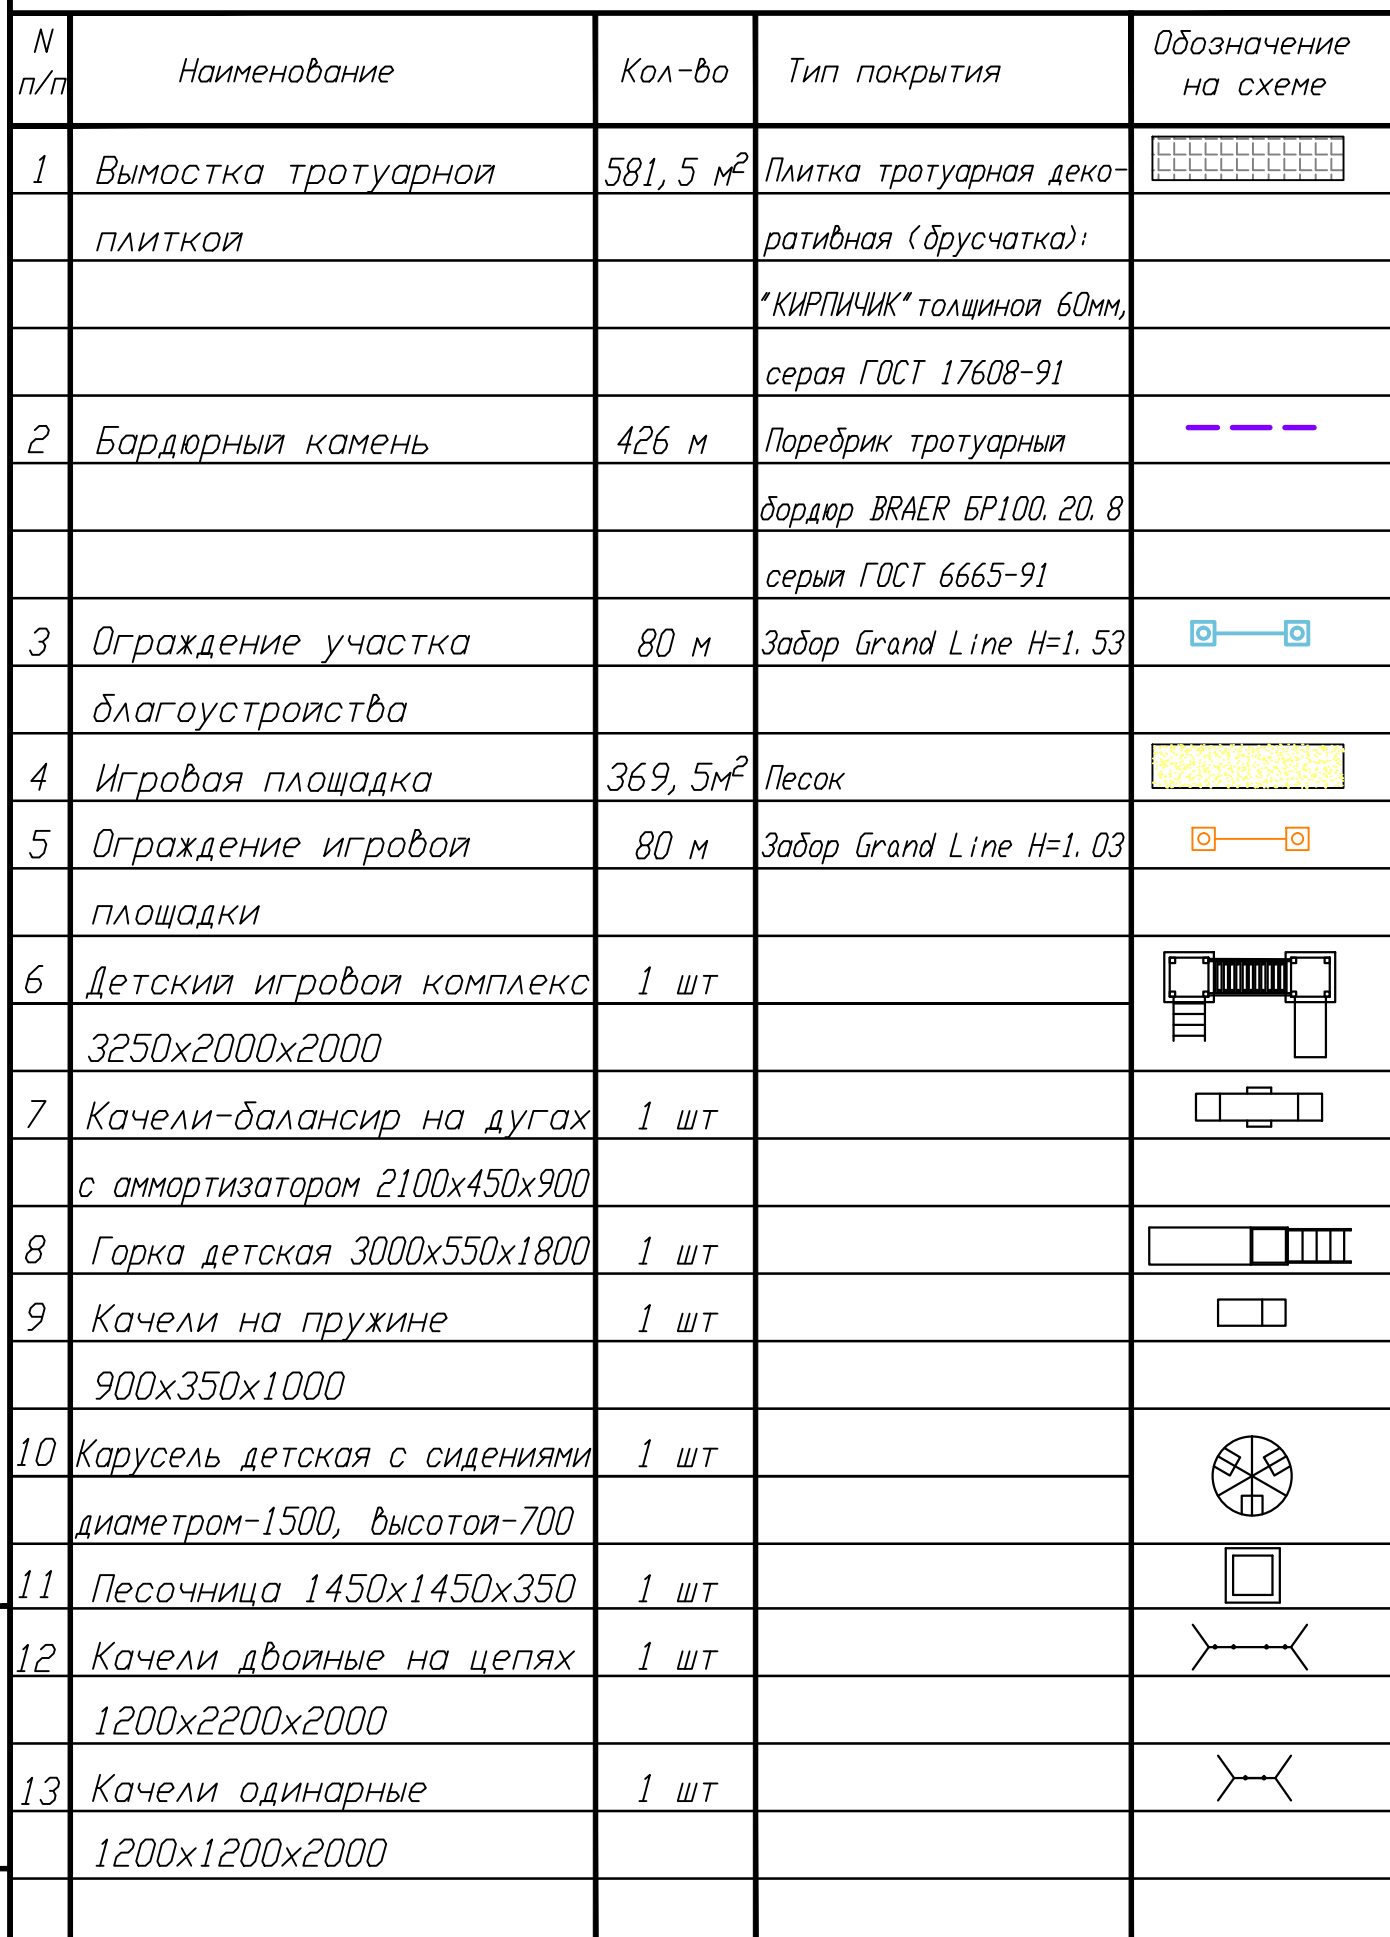 N п/п Наименование Кол-во Тип покрытия Обозначение на схеме
1 Вымостка тротуарной 581,5 м² Плитка тротуарная деко-
плиткой ративная (брусчатка):
"КИРПИЧИК" толщиной 60мм,
серая ГОСТ 17608-91
2 Бардюрный камень 426 м Поребрик тротуарный
бордюр BRAER БР100.20.8
серый ГОСТ 6665-91
3 Ограждение участка 80 м Забор Grand Line H=1.53
благоустройства
4 Игровая площадка 369,5м² Песок
5 Ограждение игровой 80 м Забор Grand Line H=1.03
площадки
6 Детский игровой комплекс 1 шт
3250х2000х2000
7 Качели-балансир на дугах 1 шт
с аммортизатором 2100х450х900
8 Горка детская 3000х550х1800 1 шт
9 Качели на пружине 1 шт
900х350х1000
10 Карусель детская с сидениями 1 шт
диаметром-1500, высотой-700
11 Песочница 1450х1450х350 1 шт
12 Качели двойные на цепях 1 шт
1200х2200х2000
13 Качели одинарные 1 шт
1200х1200х2000